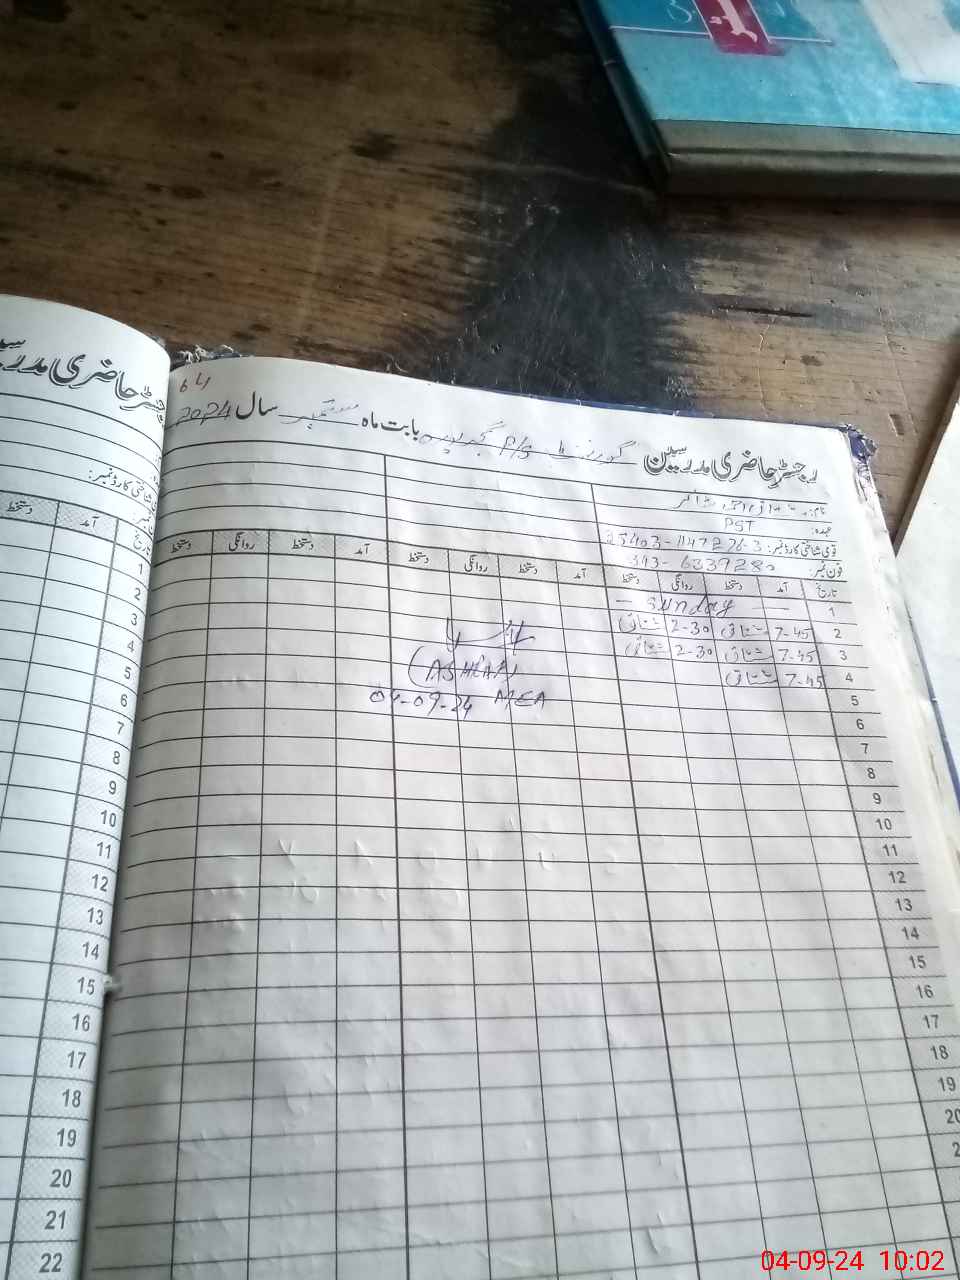 64
رجسٹر حاضری مدرسین گورنمنٹ P/S بابت ماہ ستمبر سال 2024
رجسٹر حاضری
نام:
عہدہ: PST
قومی شناختی کارڈ نمبر: 25403-1147276-3
فون نمبر: 343-6339280
تاریخ آمد دستخط روانگی دستخط آمد دستخط روانگی دستخط آمد دستخط روانگی دستخط
1 — Sunday —
2 7-45 مشتاق 2-30 مشتاق
3 7-45 مشتاق 2-30 مشتاق
4 7-45 مشتاق
(ASHFAQ)
04-09-24 MEA
5
6
7
8
9
10
11
12
13
14
15
16
17
18
19
20
شناختی کارڈ نمبر:
تاریخ آمد دستخط
1
2
3
4
5
6
7
8
9
10
11
12
13
14
15
16
17
18
19
20
21
22
04-09-24 10:02